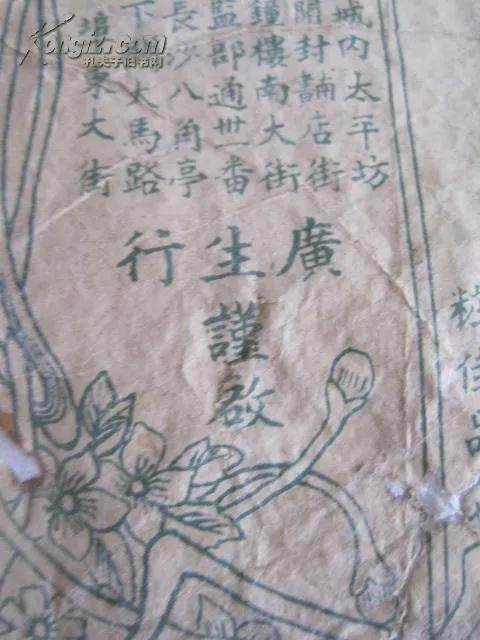 城内太平坊
開封舖店街
鐘樓南大街
監部通卅一番
長沙八角亭
下大馬路
東大街
廣生行
謹啟
佳品
Kongfz.com
孔夫子旧书网